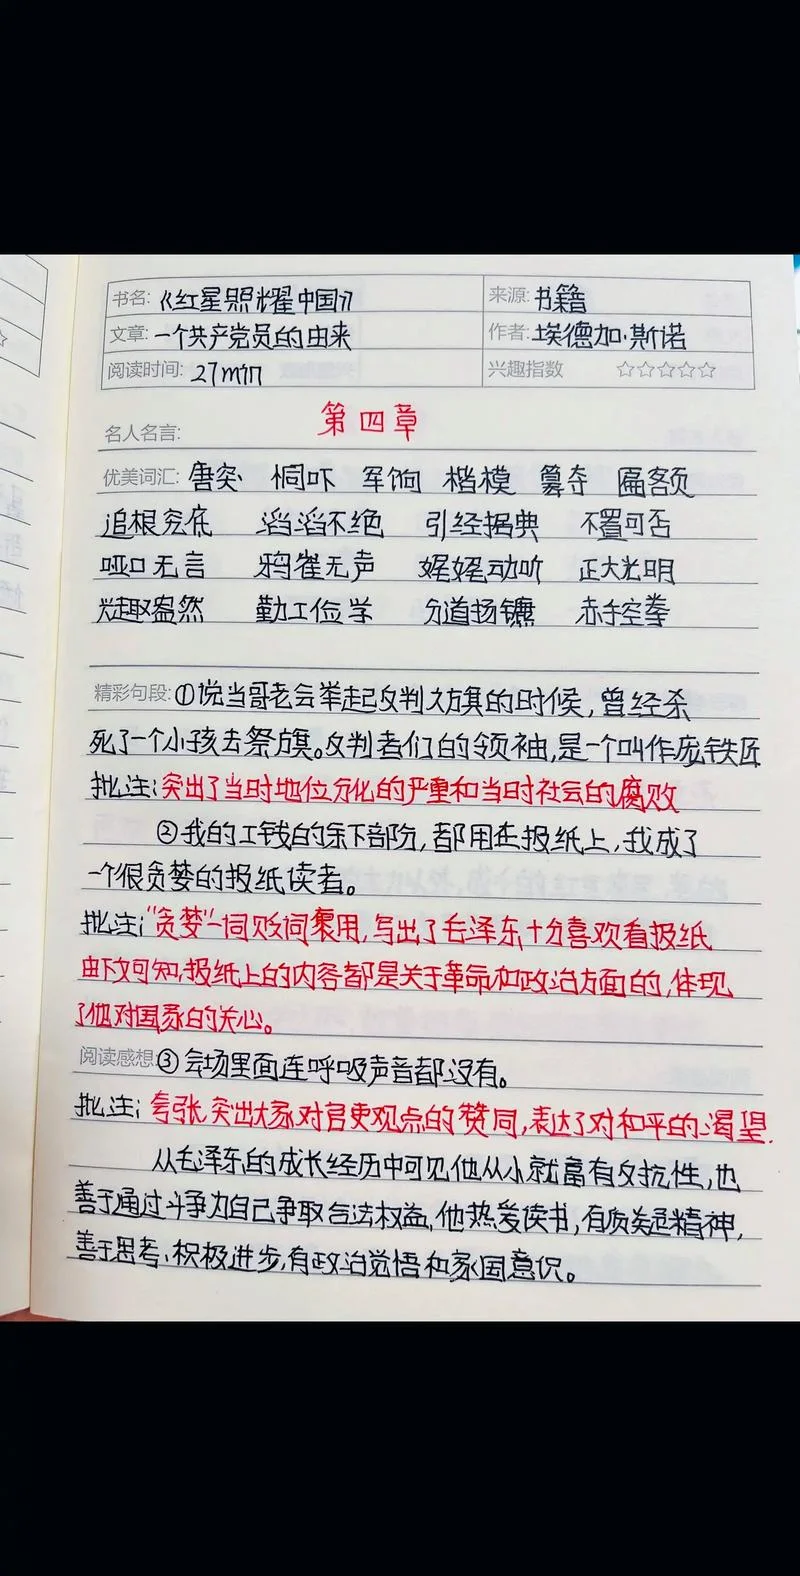 书名:《红星照耀中国》 来源:书籍
文章:一个共产党员的由来 作者:埃德加·斯诺
阅读时间: 27min 兴趣指数 ☆☆☆☆☆
第四章
名人名言:
优美词汇: 唐突 恫吓 军饷 楷模 篡夺 匾额
追根究底 滔滔不绝 引经据典 不置可否
哑口无言 鸦雀无声 娓娓动听 正大光明
兴趣盎然 勤工俭学 分道扬镳 赤手空拳
精彩句段:①说当哥老会举起反判之旗的时候,曾经杀
死了一个小孩去祭旗。反判者们的领袖,是一个叫作庞铁匠
批注:突出了当时地位分化的严重和当时社会的腐败
②我的工钱的余下部份,都用在报纸上,我成了
一个很贪婪的报纸读者。
批注:“贪婪”一词贬词褒用,写出了毛泽东十分喜欢看报纸
由下文可知,报纸上的内容都是关于革命和政治方面的,体现
了他对国家的关心。
阅读感想:③会场里面连呼吸声音都没有。
批注:夸张,突出大家对官吏观点的赞同,表达了对和平的渴望.
从毛泽东的成长经历中可见他从小就富有反抗性,也
善于通过斗争为自己争取合法权益,他热爱读书,有质疑精神,
善于思考、积极进步,有政治觉悟和家国意识。